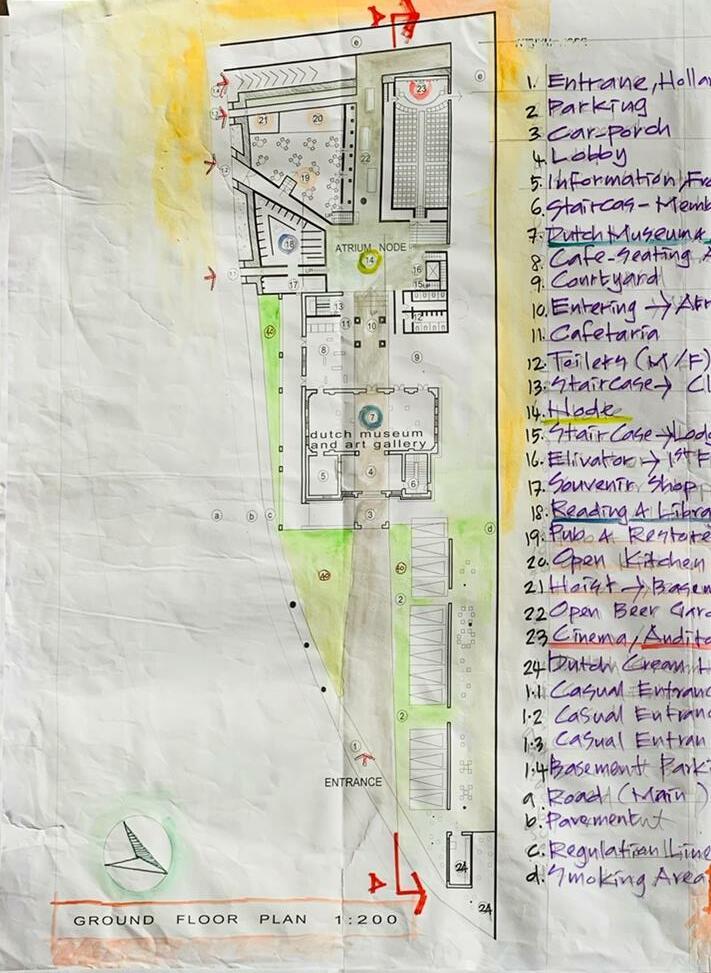 1. Entrane, Hollan
2 Parking
3. Car-porch
4. Lobby
5. Information, Fro
6. Staircas - Memb
7. Dutch Museum &
8. Cafe-Seating A
9. Courtyard
10. Entering → Atr
11. Cafetaria
12. Toilers (M/F)
13. Staircase → Cl
14. Node
15. Stair Case → Lodg
16. Elivator → 1st F
17. Souvenir Shop
18. Reading & Libra
19. Pub & Restore
20. Open Kitchen
21 Hoist → Basem
22 Open Beer Gard
23 Cinema/Audito
24 Dutch Cream H
1.1 Casual Entranc
1.2 Casual Entranc
1.3 Casual Entran
1.4 Basement Parki
a. Road (Main)
b. Pavement
c. Regulation Line
d. Smoking Area
e
e
23
21
20
22
19
18
ATRIUM NODE
14
16
15
17
13
12
11
10
8
9
7
dutch museum
and art gallery
5
4
6
3
a
b
c
d
2
2
1
ENTRANCE
24
24
GROUND FLOOR PLAN 1:200